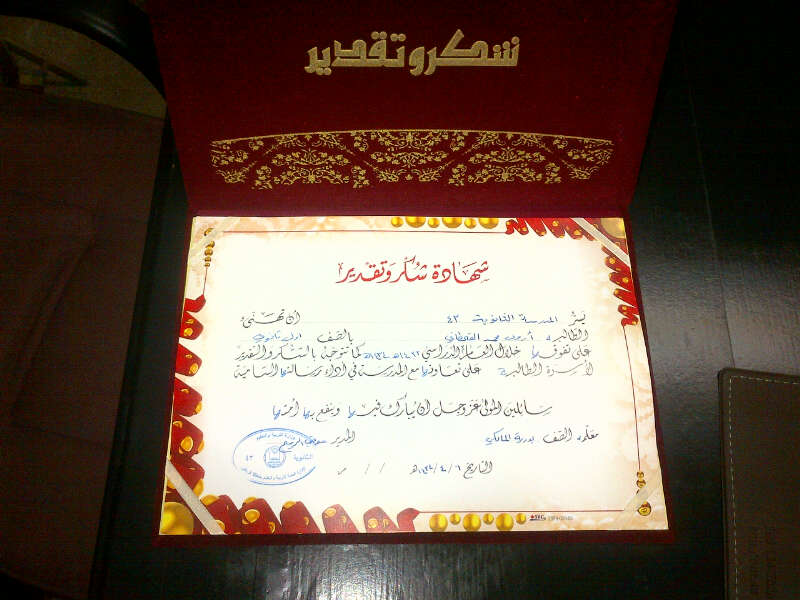 شكر وتقدير
شهادة شكر وتقدير
يسر المدرسة الثانوية ٤٣ أن تهنئ
الطالبة أروى محمد القحطاني بالصف أول ثانوي
على تفوقها خلال العام الدراسي كما تتوجه بالشكر والتقدير
لأسرة الطالبة على تعاونها مع المدرسة في أداء رسالتها السامية
سائلين المولى عز وجل أن يبارك فيها وينفع بها أمتها
معلمة الصف بدرية المالكي المدير
الثانوية
٤٣
التاريخ / / م